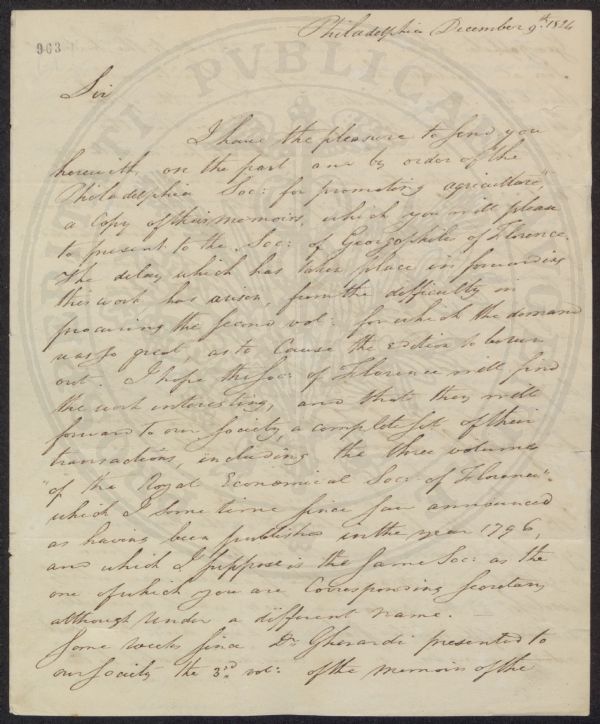 963
Philadelphia December 9th 1824
Sir
I have the pleasure to send you
herewith, on the part and by order of the
"Philadelphia Soc: for promoting agriculture,"
a Copy of their memoirs, which you will please
to present to the Soc: of Georgophiles of Florence.
The delay which has taken place in forwarding
this work has arisen, from the difficulty in
procuring the second vol: for which the demand
was so great, as to Cause the Edition to be run
out. I hope the Soc: of Florence will find
the work interesting, and that they will
forward to our Society, a complete set of their
transactions, including the three volumes
"of the Royal Economical Soc: of Florence".
which I some time since saw announced
as having been published in the year 1796,
and which I suppose is the same Soc: as the
one of which you are Corresponding Secretary
although under a different name. —
Some weeks since Dr Gherardi presented to
our Society the 3rd vol: of the memoirs of the